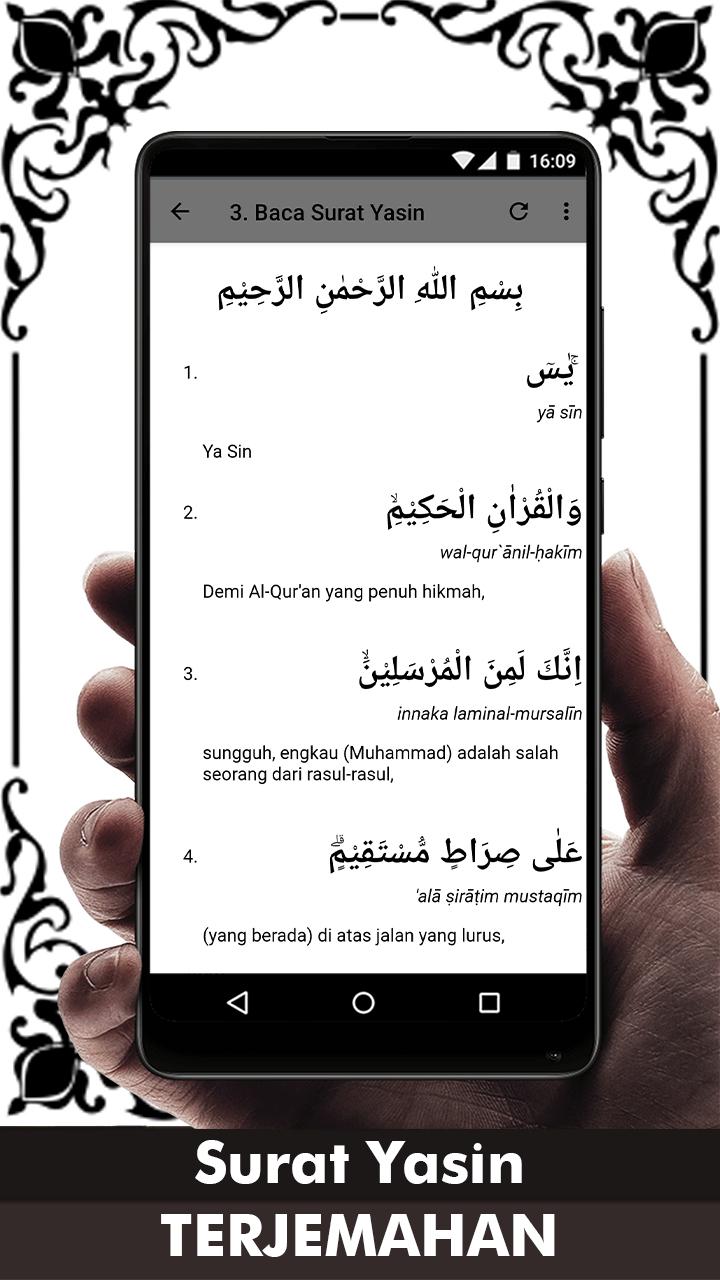 16:09
3. Baca Surat Yasin
بِسْمِ اللّٰهِ الرَّحْمٰنِ الرَّحِيْمِ
1. يٰسۤ ۚ
yā sīn
Ya Sin
2. وَالْقُرْاٰنِ الْحَكِيْمِۙ
wal-qur`ānil-ḥakīm
Demi Al-Qur'an yang penuh hikmah,
3. اِنَّكَ لَمِنَ الْمُرْسَلِيْنَۙ
innaka laminal-mursalīn
sungguh, engkau (Muhammad) adalah salah
seorang dari rasul-rasul,
4. عَلٰى صِرَاطٍ مُّسْتَقِيْمٍۗ
'alā ṣirāṭim mustaqīm
(yang berada) di atas jalan yang lurus,
Surat Yasin
TERJEMAHAN